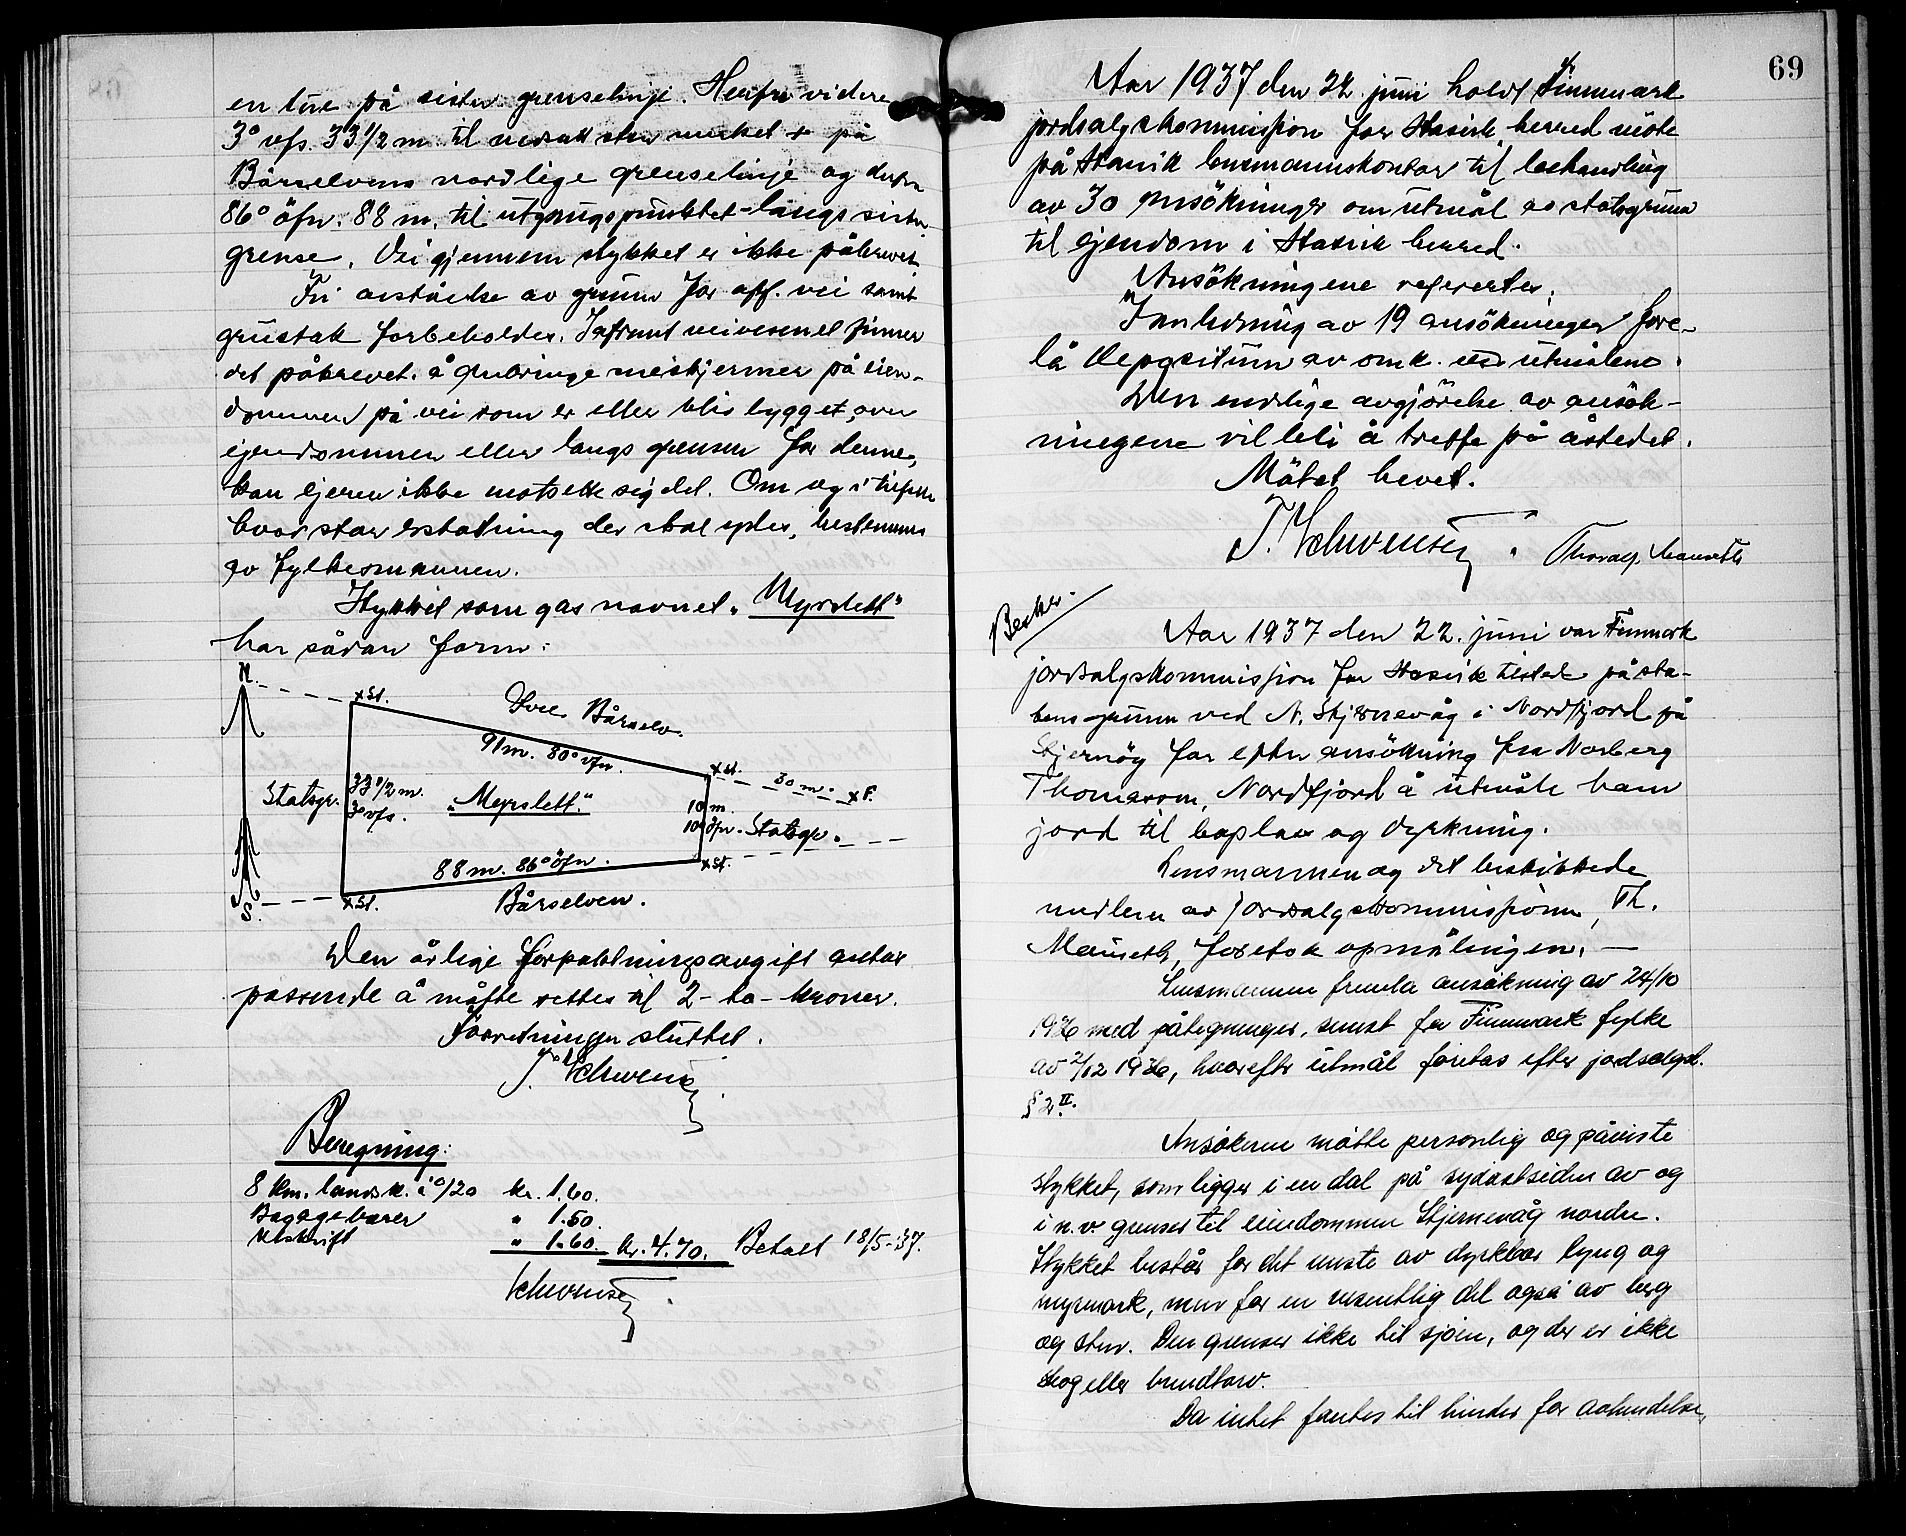 en ture på siste grenselinje. Herfra videre
3° vfs. 33 1/2 m til nedsatt sten merket + på
Bårselvens nordlige grenselinje og derfra
86° öfn. 88 m. til utgangspunktet langs siste
grense. Vei gjennem stykket er ikke påkrevet.
Fri avståelse av grunn for off. vei samt
grustak forbeholdes. Satfremt veivesenet finner
det påkrevet å anbringe sneskjermer på eien-
dommen på vei som er eller blir bygget over
ejendommen eller langs grensen for denne,
kan ejeren ikke motsette sig det. Om og i tilfelle
hvor stor erstatning der skal ydes, bestemmes
av fylkesmannen.
Stykket som gas navnet „Myrslett"
har sådan form:
N.
x St.
Iver Bårselv.
91 m. 80° vfn.
x St.
30 m.
x F.
Statsgr.
33 1/2 m.
3° vfs.
„Myrslett."
10 m.
10° öfn.
Statsgr.
88 m. 86° öfn.
x St.
S.
x St.
Bårselven.
Den årlige forpaktningsavgift antas
passende å måtte settes til 2 - to - kroner.
Forretningen sluttet.
J. Schwensen
Beregning:
8 km. landsk. à 0/20 kr. 1.60.
Bagagebærer " 1.50.
Utskrift " 1.60. kr. 4.70. Betalt 18/5-37.
Schwensen
69
Aar 1937 den 22. juni holdt Finnmark
jordsalgskommissjon for Hasvik herred møte
på Hasvik lensmannskontor til behandling
av 30 ansökninger om utmål av statsgrunn
til ejendom i Hasvik herred.
Ansökningene refereertes.
I anledning av 19 ansökninger fore-
lå depositum av omk. ved utmålene.
Den endelige avgjörelse av ansök-
ningene vil bli å treffe på åstedet.
Mötet hevet.
J. Schwensen. Thoralf Mauseth
Besk.
Aar 1937 den 22. juni var Finnmark
jordsalgskommissjon for Hasvik tilstede på sta-
tens grunn ved N. Stjernevåg i Nordfjord på
Stjernöy for efter ansökning fra Norberg
Thomassen, Nordfjord å utmåle ham
jord til boplass og dyrkning.
Lensmannen og det beskikkede
medlem av jordsalgskommissjonen, Th.
Mauseth, foretok opmålingen. —
Lensmannen fremla ansökning av 24/10
1936 med påtegninger, senest fra Finnmark fylke
av 2/12 1936, hvorefter utmål foretas efter jordsalgsl.
§ 2 II.
Ansökeren mötte personlig og påviste
stykket, som ligger i en dal på sydöstsiden av og
i n.v. grenser til eiendommen Stjernevåg nordre.
Stykket består for det meste av dyrkbar lyng og
myrmark, men for en vesentlig del også av berg
og sten. Den grenser ikke til sjöen, og der er ikke
skog eller brendtorv.
Da intet fantes til hinder for avhendelse,